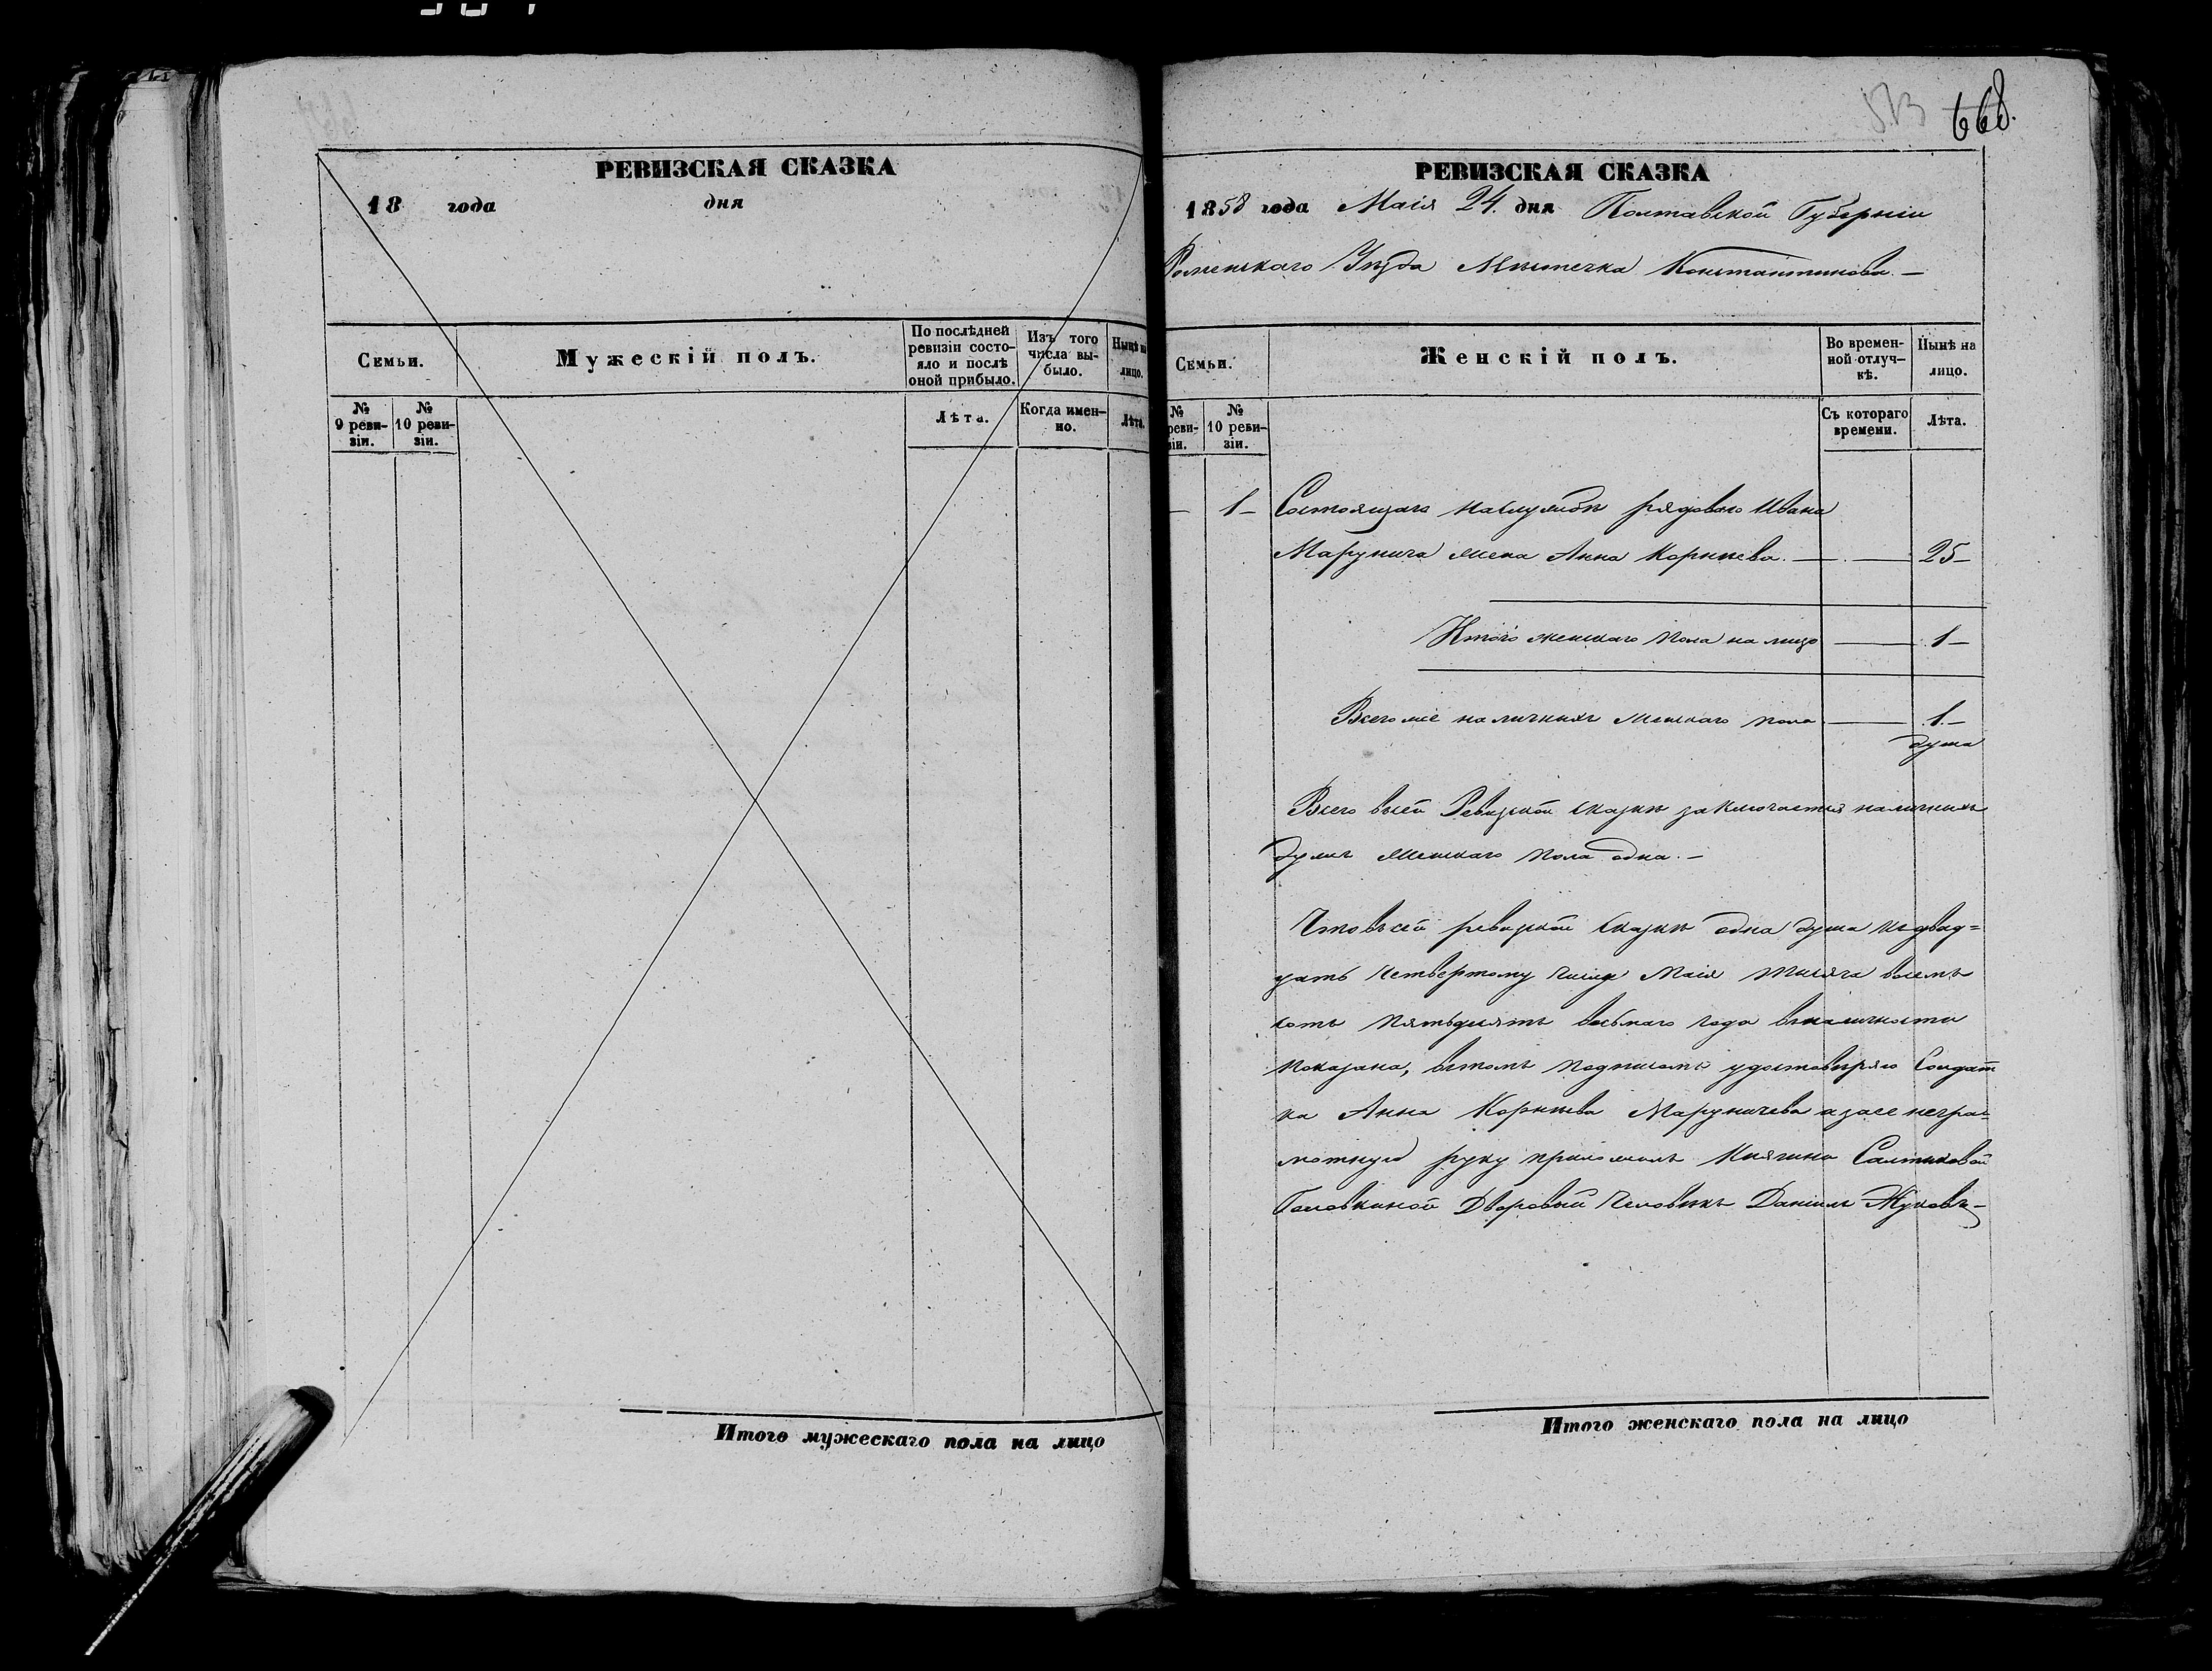 РЕВИЗСКАЯ СКАЗКА
18 года дня
Семьи.
Мужескій полъ.
По послѣдней ревизіи состо-
яло и послѣ оной прибыло.
Изъ того числа вы-
было.
Нынѣ на лицо.
№ 9 реви-
зіи.
№ 10 реви-
зіи.
Лѣта.
Когда имен-
но.
Лѣта.
Итого мужескаго пола на лицо
668.
РЕВИЗСКАЯ СКАЗКА
1858 года Маія 24. дня Полтавской Губерніи
Роменскаго Уѣзда Мѣстечка Константинова. —
Семьи.
Женскій полъ.
Во времен-
ной отлуч-
кѣ.
Нынѣ на лицо.
№ реви-
зіи.
№ 10 реви-
зіи.
Съ котораго времени.
Лѣта.
— 1 — Состоящаго наслужбѣ рядоваго Ивана
Марунича жена Анна Корнѣева. — — 25 —
Итого женскаго пола на лицо — 1 —
Всего же наличныхъ женскаго пола — 1. —
душа
Всего всей Ревизской сказкѣ заключается наличныхъ
душъ женскаго пола одна. —
Что всей ревизской сказкѣ одна душа къ двад=
цать четвертому числу Маія тысяча восемь
сотъ пятьдесятъ восьмаго года вналичности
показана, втомъ подписомъ удостовѣряю Солдат
ка Анна Корнѣева Маруничева а заее негра=
мотную руку приложилъ Княгини Салтыковой
Головкиной Дворовый человѣкъ Даніилъ Жуковъ —
Итого женскаго пола на лицо